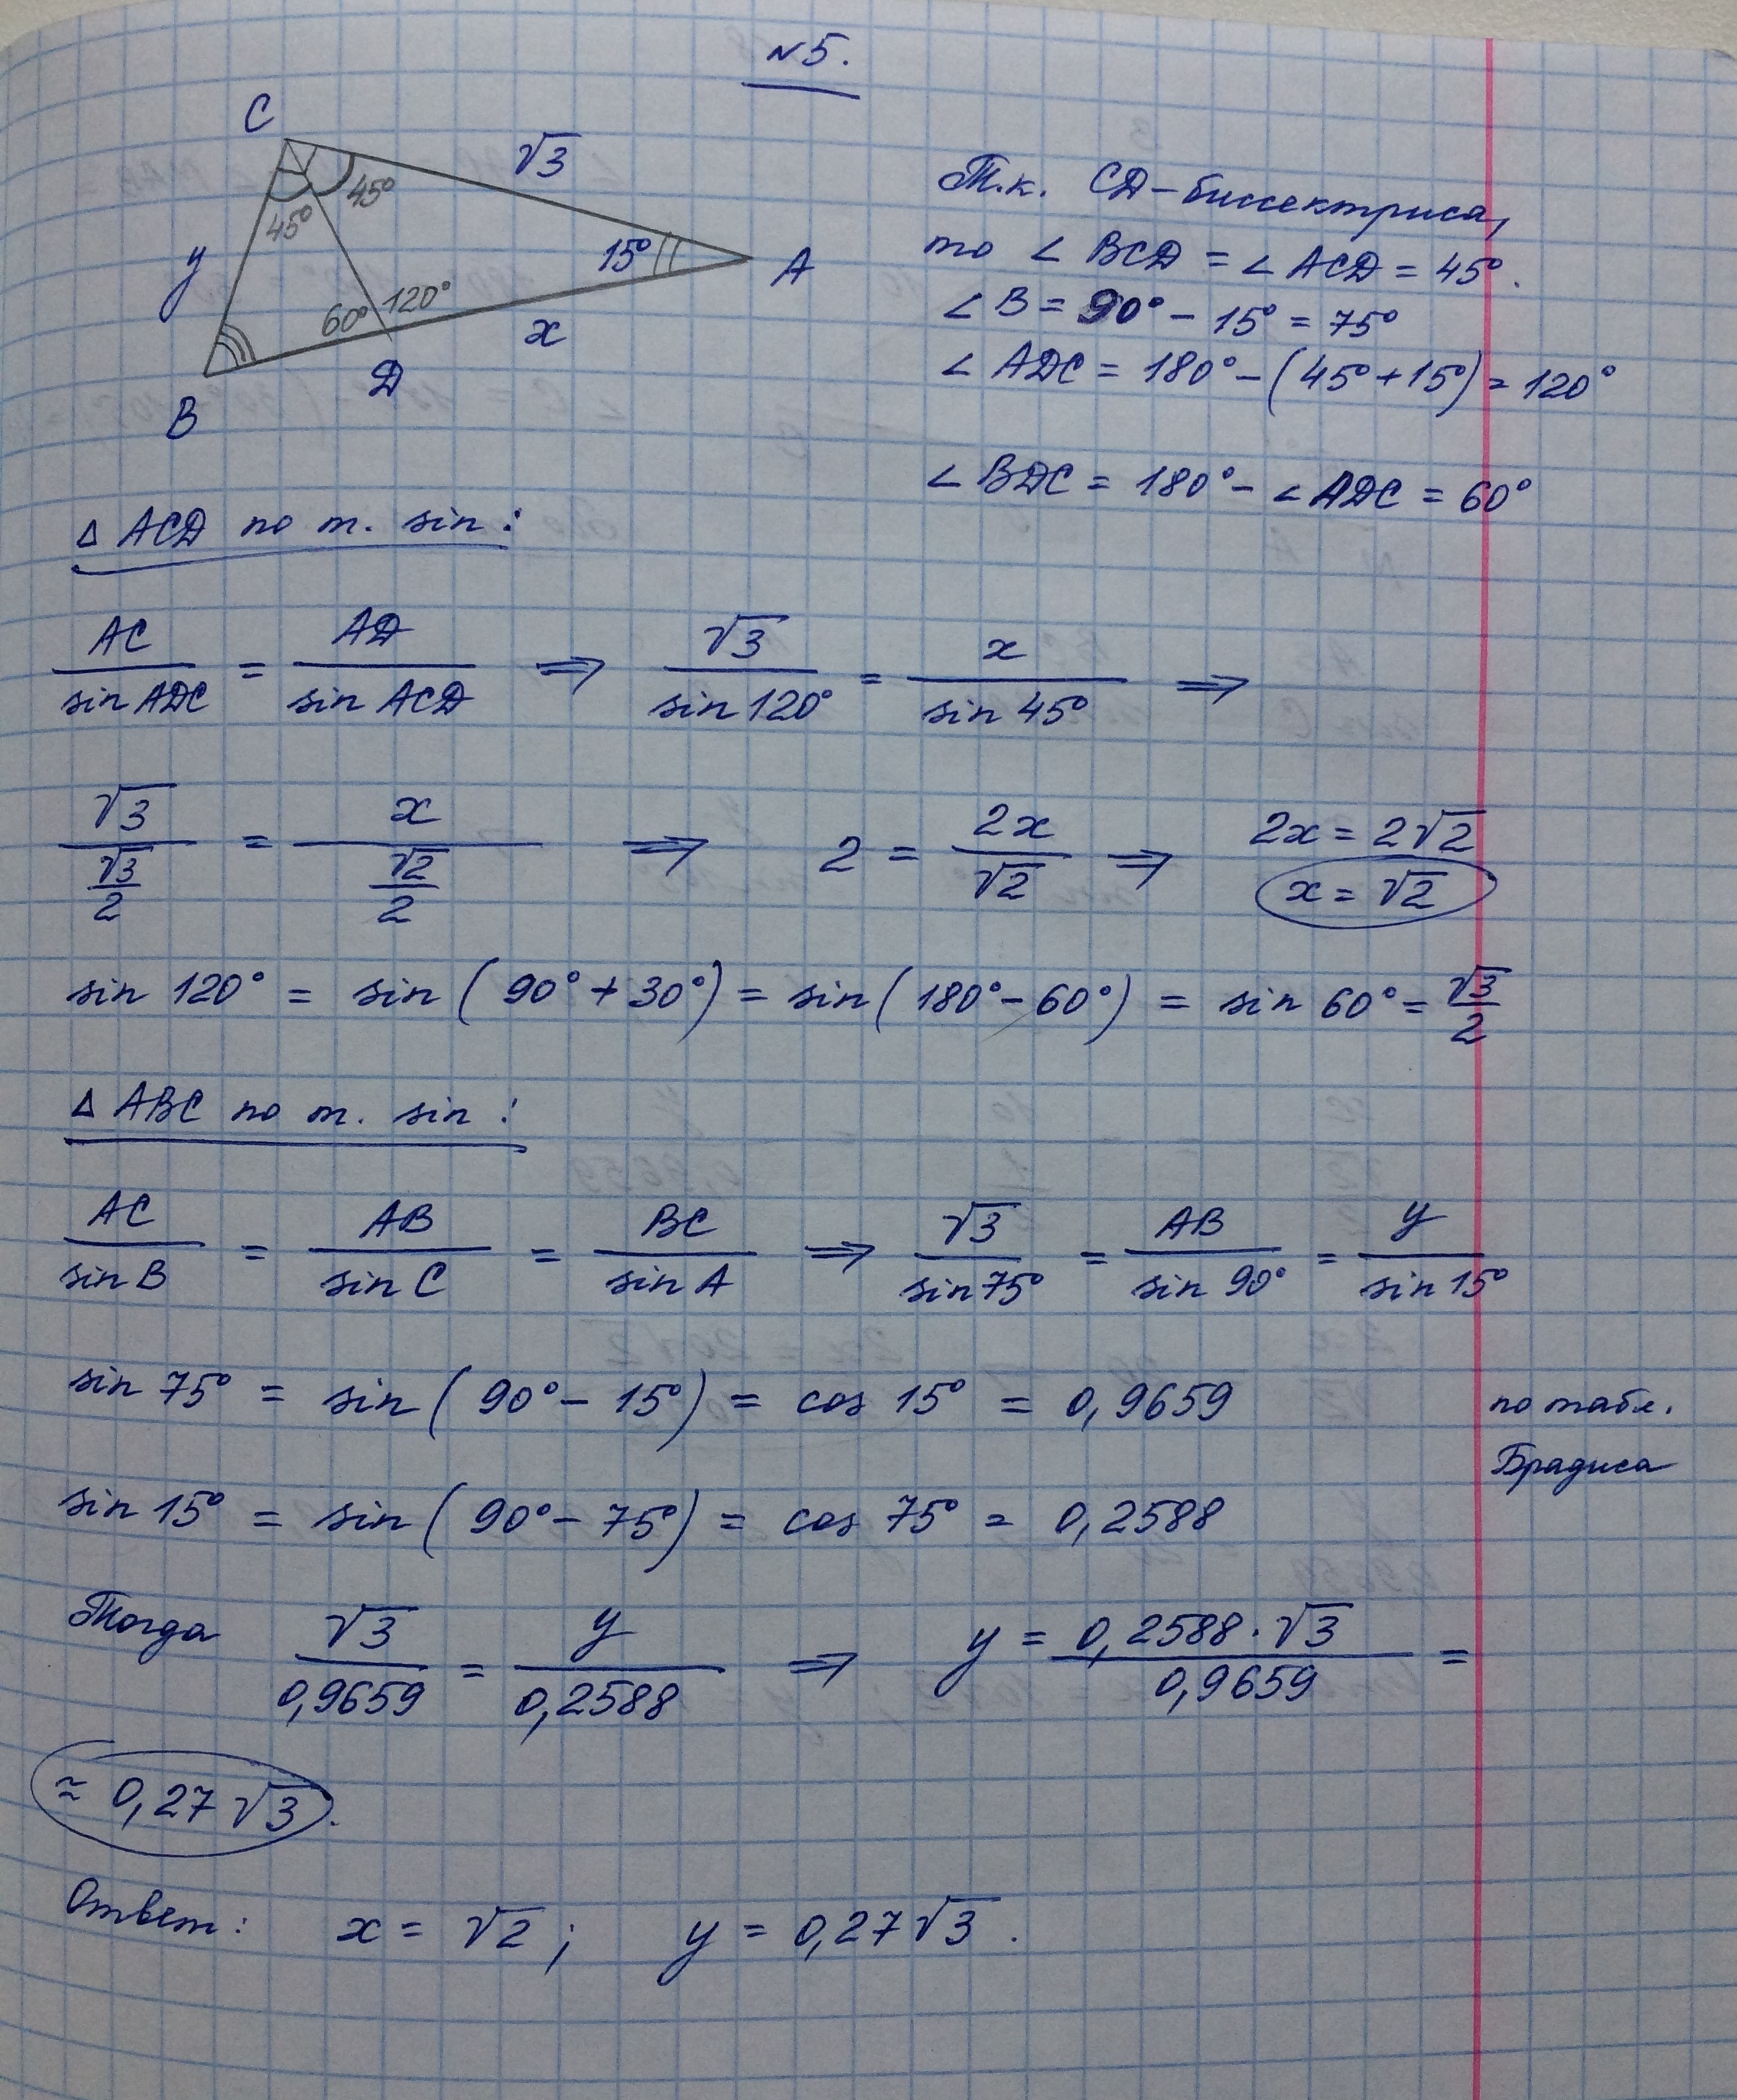 №5.
C
√3
45°
45°
y
15°
A
60°
120°
x
D
B
Т.к. CD – биссектриса,
то ∠ BCD = ∠ ACD = 45°.
∠ B = 90° – 15° = 75°
∠ ADC = 180° – (45° + 15°) = 120°
∠ BDC = 180° – ∠ ADC = 60°
Δ ACD по т. sin :
AC / sin ADC = AD / sin ACD ⇒ √3 / sin 120° = x / sin 45° ⇒
√3 / (√3 / 2) = x / (√2 / 2) ⇒ 2 = 2x / √2 ⇒ 2x = 2√2
x = √2
sin 120° = sin ( 90° + 30° ) = sin ( 180° – 60° ) = sin 60° = √3 / 2
Δ ABC по т. sin :
AC / sin B = AB / sin C = BC / sin A ⇒ √3 / sin 75° = AB / sin 90° = y / sin 15°
sin 75° = sin ( 90° – 15° ) = cos 15° = 0,9659 по табл.
Брадиса
sin 15° = sin ( 90° – 75° ) = cos 75° = 0,2588
Тогда √3 / 0,9659 = y / 0,2588 ⇒ y = 0,2588 · √3 / 0,9659 =
≈ 0,27 √3 .
Ответ : x = √2 ; y = 0,27 √3 .